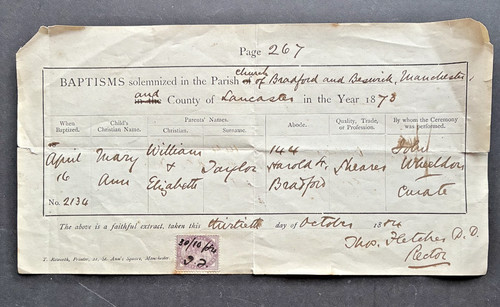 Page 267
BAPTISMS solemnized in the Parish church of of Bradford and Beswick, Manchester,
and in the County of Lancaster in the Year 1873
When Baptized. Child's Christian Name. Parents' Names. Christian. Surname. Abode. Quality, Trade, or Profession. By whom the Ceremony was performed.
April Mary William 144 John
16 Ann & Taylor Harold St. Wheeldon
Elizabeth Bradford Curate
No. 2134
The above is a faithful extract, taken this thirtieth day of October 1884
Thos. Fletcher D.D.
Rector
30/10/84
T. F.
Printer, St. Ann's Square, Manchester